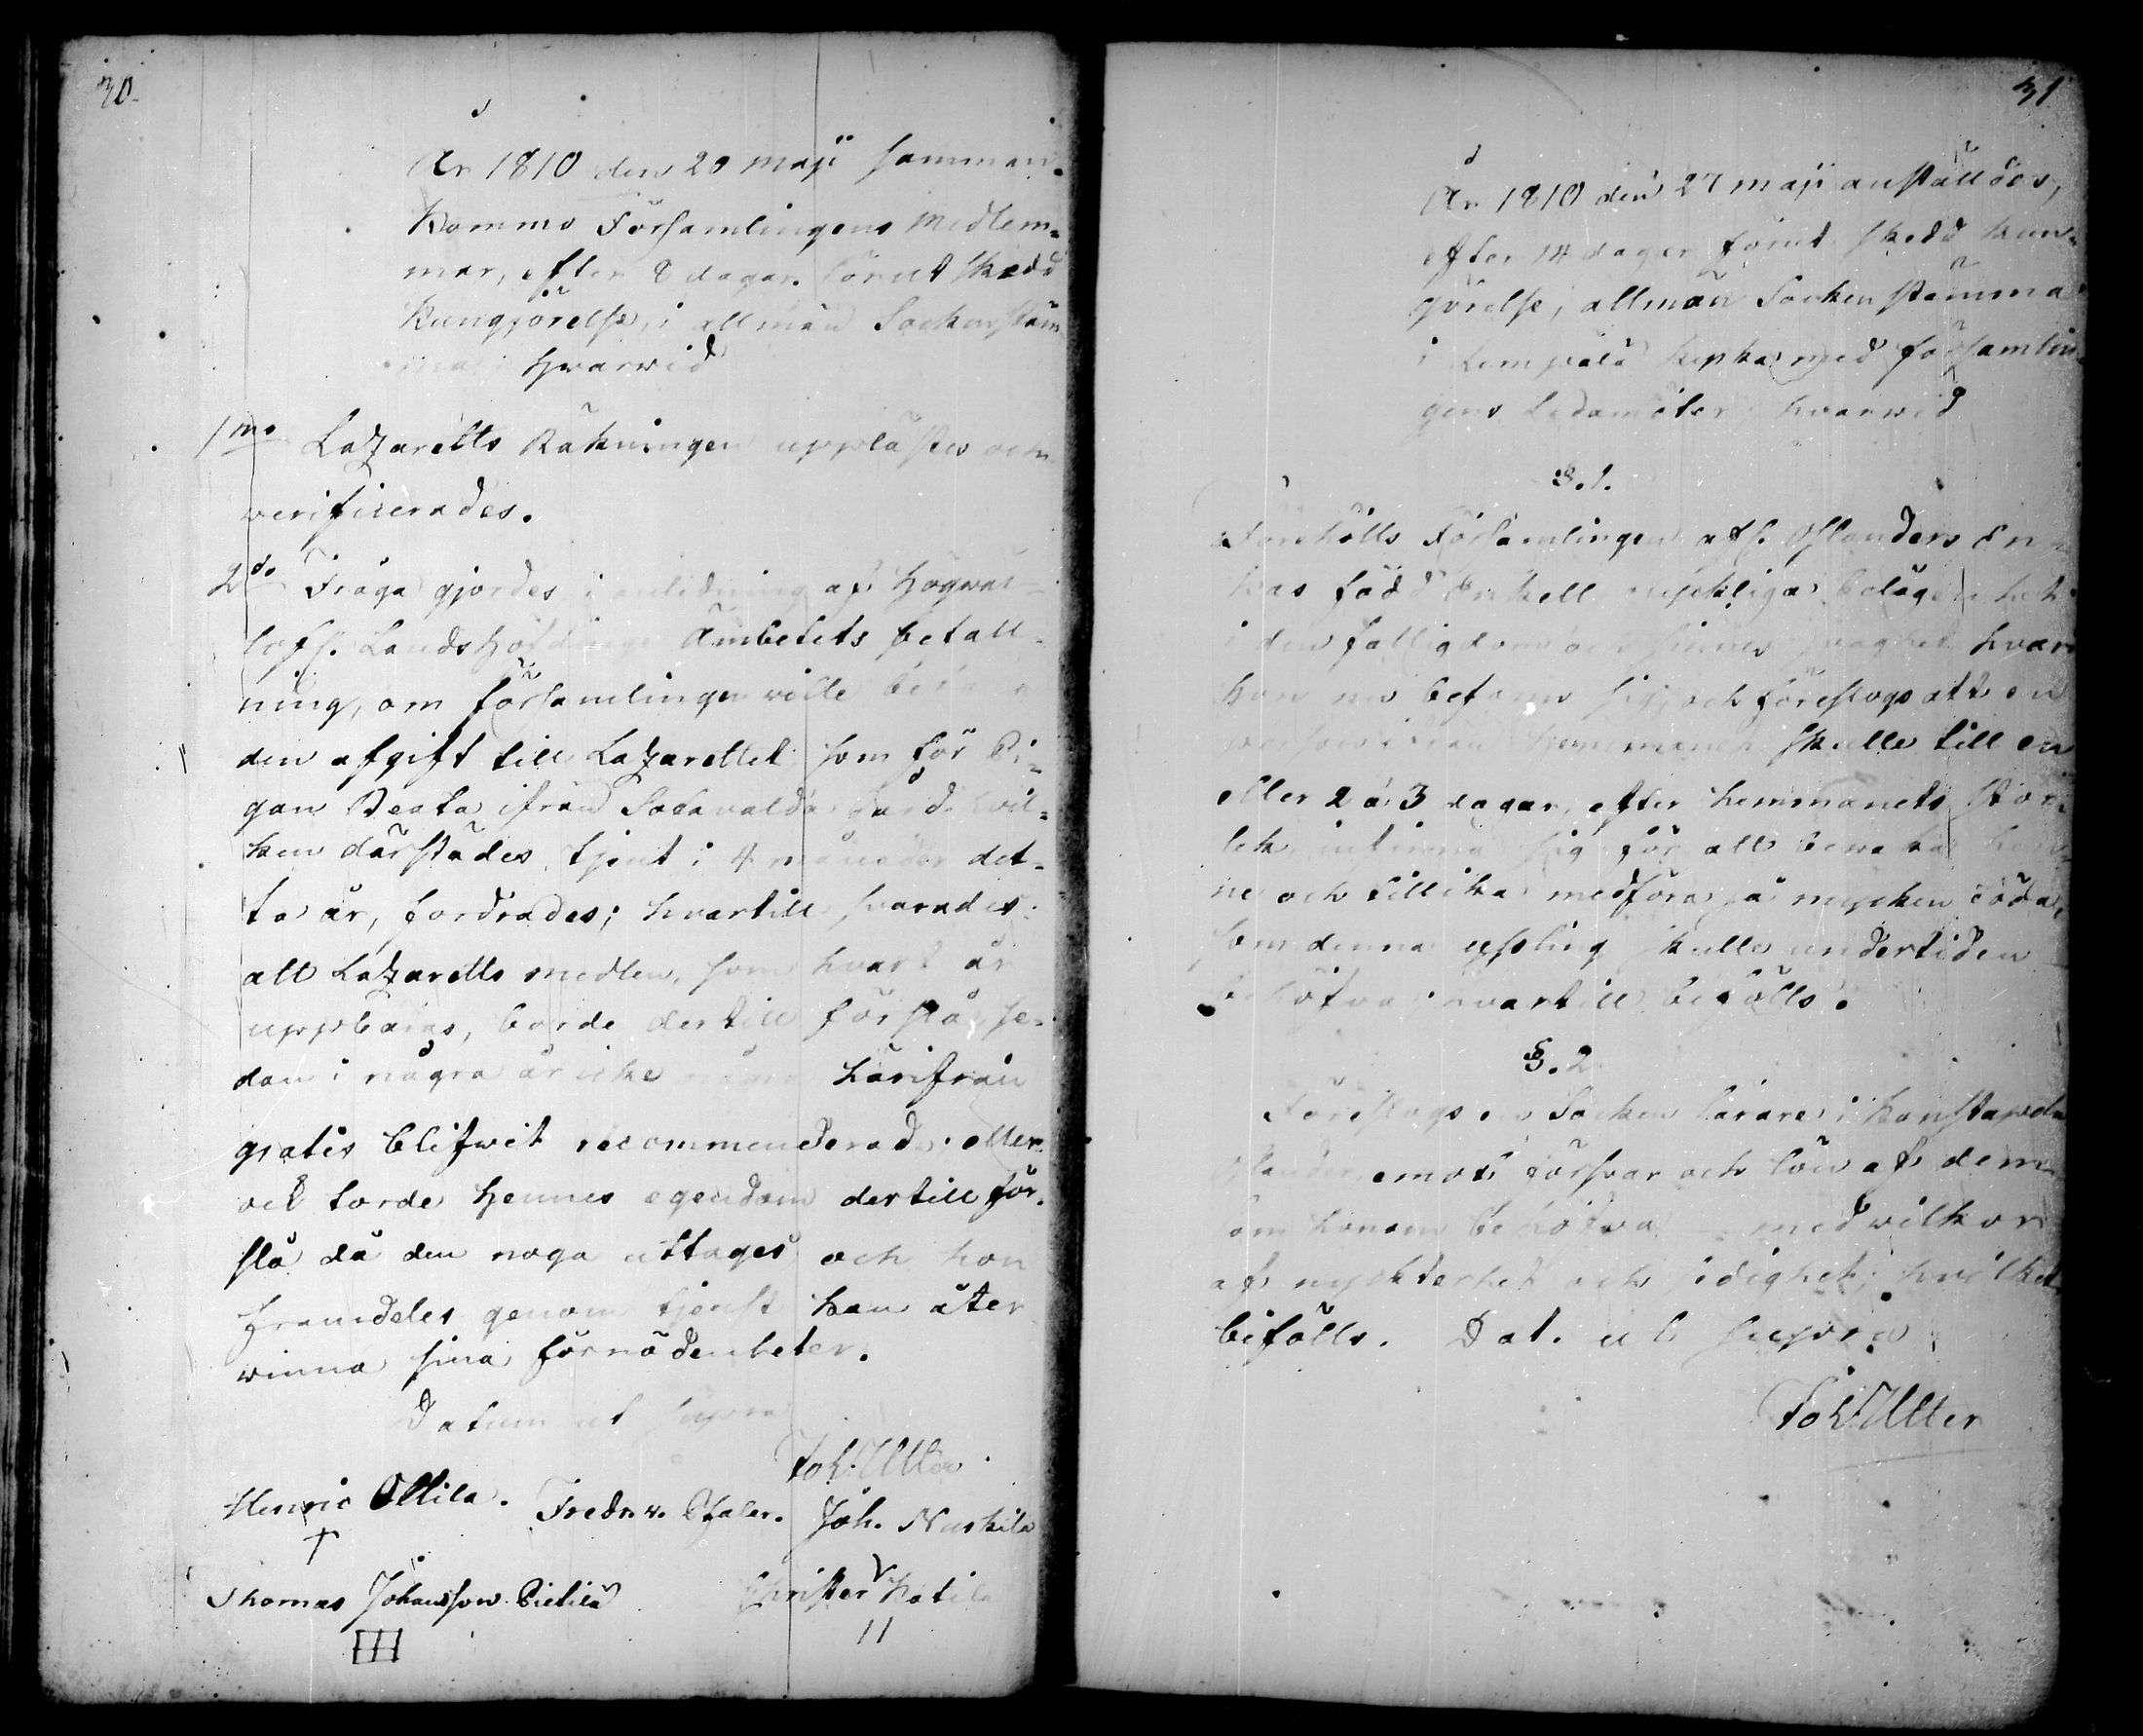 30.
År 1810 den 20 maji samman-
kommo Församlingens Medlem-
mar, efter 8 dagar förut skedd
kungjörelse, i allmän Sockenstäm
ma, hwarwid
1mo Lazaretts Räkningen upplästes och
verificerades.
2do Fråga gjordes i anledning af Högwäl-
lofl. Landshöfdinge Ämbetets befall-
ning, om församlingen wille betala
den afgift till Lazarettet som för Pi-
gan Beata ifrån Sotavalda gård, hvil-
ken därstädes tjent i 4 månader det-
ta år, fordrades; hvartill svarades:
att Lazaretts medlen, som hvart år
uppbäras, borde dertill förslå, se-
dan i några år icke någon härifrån
gratis blifwit recommenderad; eller
ock torde hennes egendom dertill för-
slå då den noga uttages och hon
framdeles genom tjenst kan åter
winna sina förnödenheter.
Datum ut supra
Joh. Utter
Henric Ollila. Fredr. v. Pfaler. Joh. Nuskila
Thomas Johansson Pietilä Christer Kotila
11
31
År 1810 den 27 maji anställdes,
efter 14 dagar förut skedd kun-
görelse, allmän Sockenstämma
i Lempälä kyrka med församlin
gens Ledamöter, hvarwid
§. 1.
Förehölls Församlingen afl. Oslanders En-
kas född Enkell ryckliga belägenhet
i den fattigdom och sinnes svaghet hvari
hon nu befann sig, och föreslogs att en
person ifrån hemmanen skulle till en
eller 2 à 3 dagar, efter hemmanets stor-
lek, infinna sig för att bewaka hen-
ne och tillika medföra så mycken föda,
som denna yssling skulle undertiden
behöfva; hvartill bifölls.
§. 2.
Föreslogs en Socken lärare i Konstapeln
Oslander, emot försvar och lön af dem
som honom behöfva med wilkor
af nyckterhet och sedighet; hvilket
bifölls. Dat. ut supra
Joh. Utter